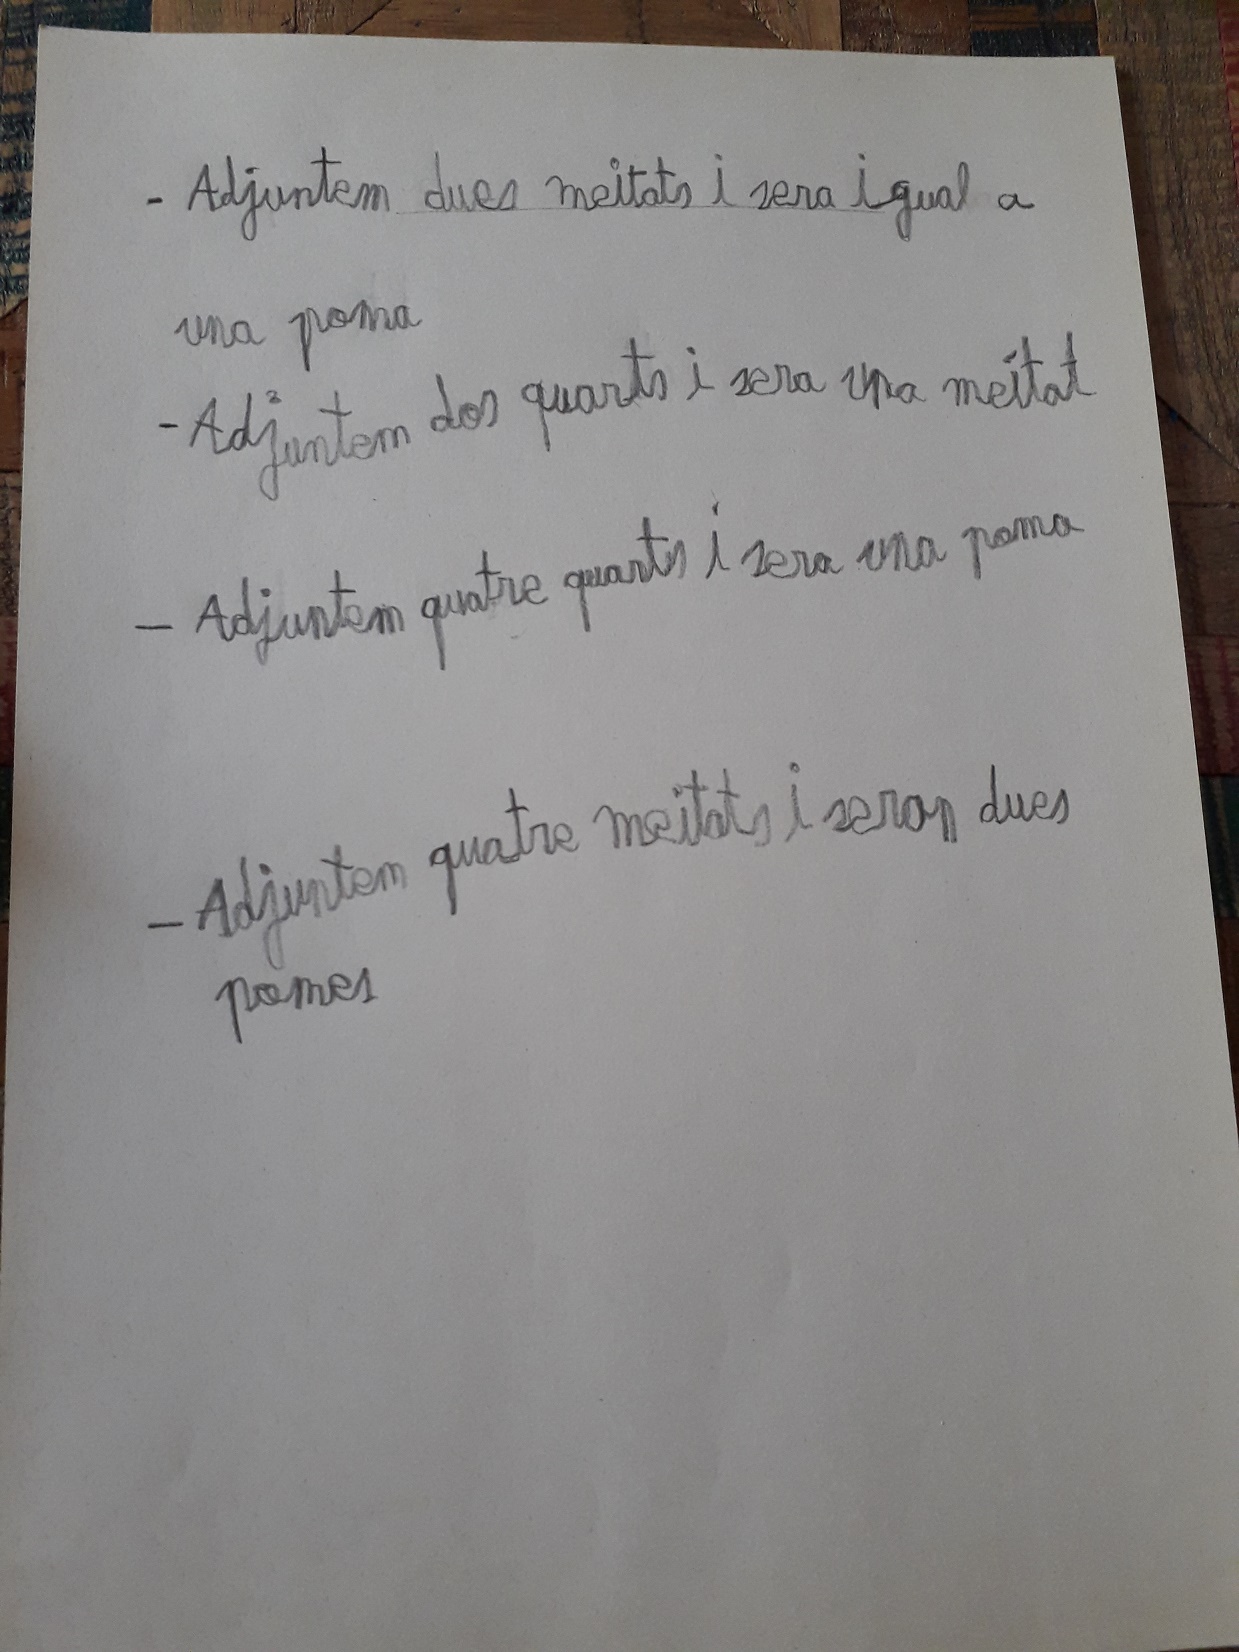 - Adjuntem dues meitats i sera igual a
una poma
- Adjuntem dos quarts i sera una meitat
- Adjuntem quatre quarts i sera una poma
- Adjuntem quatre meitats i seran dues
pomes